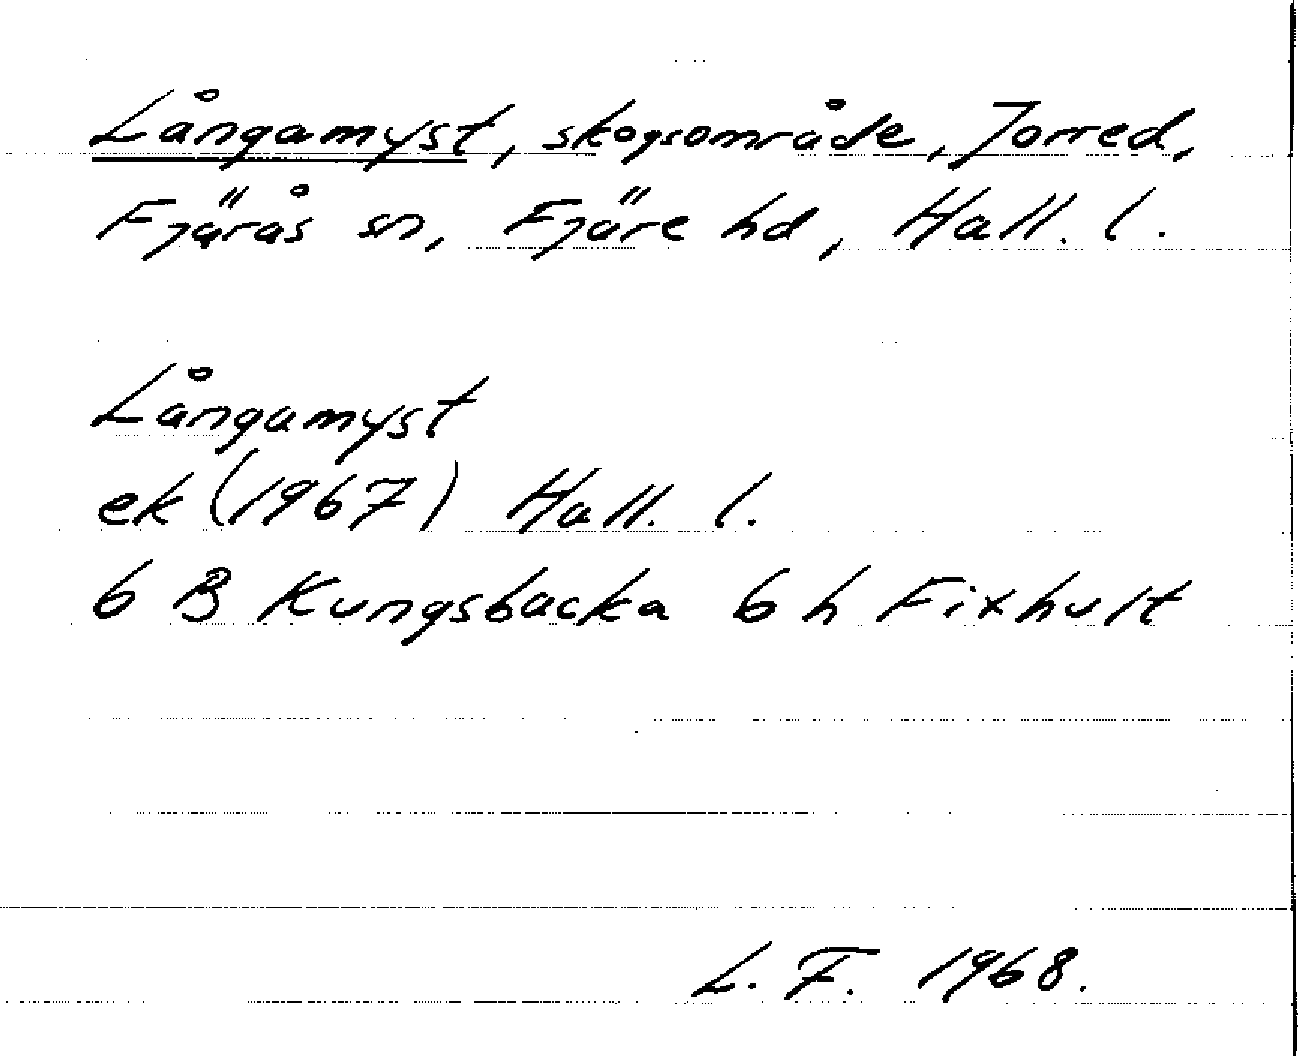 Långamyst, skogsområde, Jorred,
Fjärås sn, Fjäre hd, Hall. l.
Långamyst
ek (1967) Hall. l.
6 B Kungsbacka 6 h Fixhult
L. F. 1968.